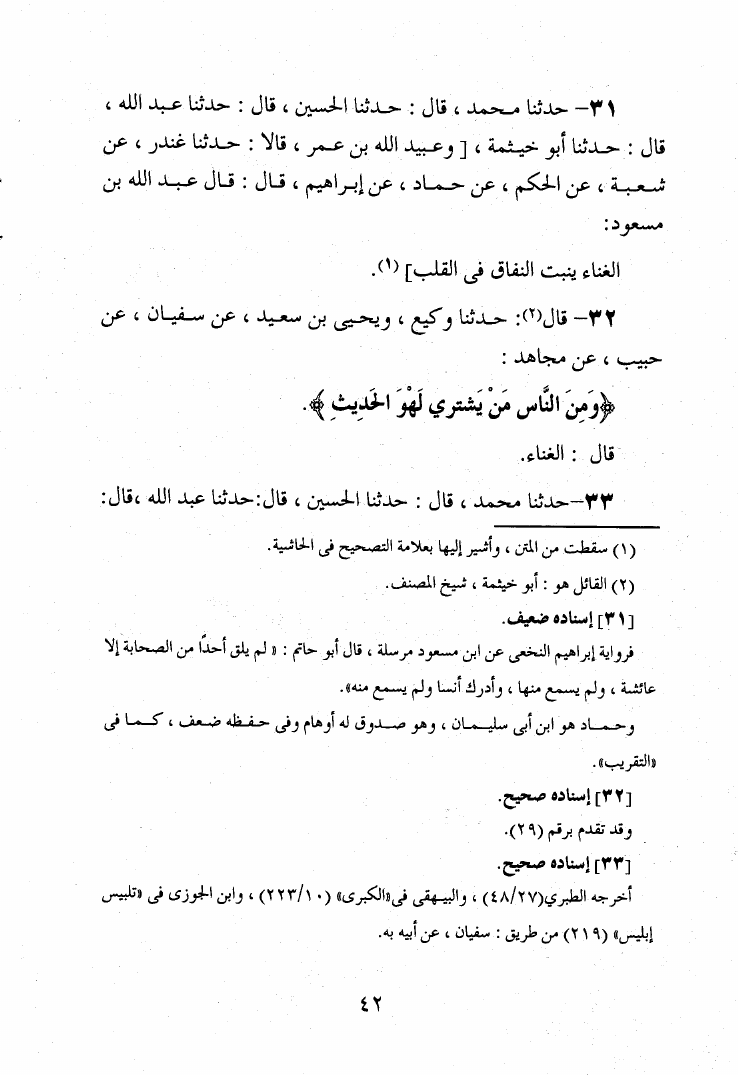 ٣١– حدثنا محمد ، قال : حدثنا الحسين ، قال : حدثنا عبد الله ،
قال : حدثنا أبو خيثمة ، [ وعبيد الله بن عمر ، قالا : حدثنا غندر ، عن
شعبة ، عن الحكم ، عن حماد ، عن إبراهيم ، قال : قال عبد الله بن
مسعود:
الغناء ينبت النفاق فى القلب] (١).
٣٢– قال(٢): حدثنا وكيع ، ويحيى بن سعيد ، عن سفيان ، عن
حبيب ، عن مجاهد :
﴿وَمِنَ النَّاس مَنْ يَشتري لَهْوَ الحَديثِ ﴾.
قال : الغناء.
٣٣–حدثنا محمد ، قال : حدثنا الحسين ، قال:حدثنا عبد الله ،قال:
(١) سقطت من المتن ، وأشير إليها بعلامة التصحيح فى الحاشية.
(٢) القائل هو : أبو خيثمة ، شيخ المصنف.
[٣١] إسناده ضعيف.
فرواية إبراهيم النخعى عن ابن مسعود مرسلة ، قال أبو حاتم : « لم يلق أحدًا من الصحابة إلا
عائشة ، ولم يسمع منها ، وأدرك أنسا ولم يسمع منه».
وحماد هو ابن أبى سليمان ، وهو صدوق له أوهام وفى حفظه ضعف ، كما فى
«التقريب».
[٣٢] إسناده صحيح.
وقد تقدم برقم (٢٩).
[٣٣] إسناده صحيح.
أخرجه الطبري(٤٨/٢٧) ، والبيهقى فى«الكبرى» (٢٢٣/١٠) ، وابن الجوزى فى «تلبيس
إبليس» (٢١٩) من طريق : سفيان ، عن أبيه به.
٤٢